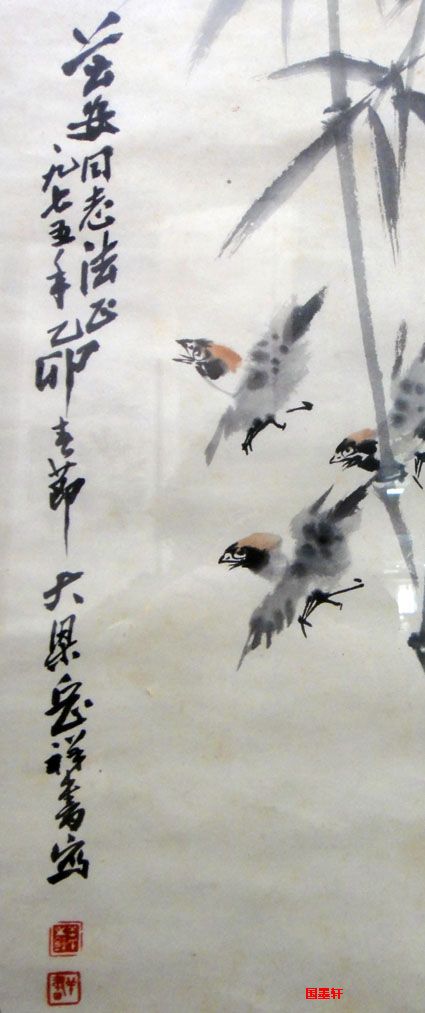 芸安同志法正
一九七五年乙卯春节大梁岳祥书写
国墨轩